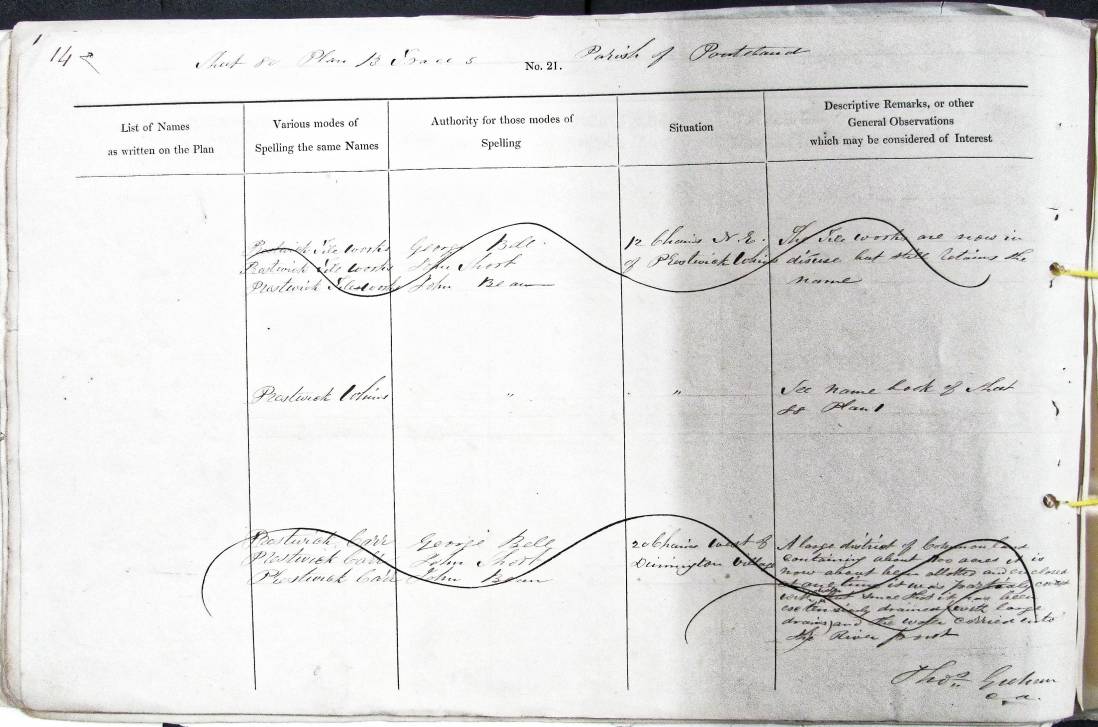 14
Sheet 80 Plan 13 Trace 5 No. 21. Parish of Ponteland
List of Names
as written on the Plan
Various modes of
Spelling the same Names
Authority for those modes of
Spelling
Situation
Descriptive Remarks, or other
General Observations
which may be considered of Interest
Prestwick Tile Works
Prestwick Tile Works
Prestwick Tile Works
George Bell
John Short
John Bean
12 Chains N.E.
of Prestwick Whins
The Tile works are now in
disuse but still retains the
name
Prestwick Whins
"
"
See name book of Sheet
88 Plan 1
Prestwick Carr
Prestwick Carr
Prestwick Carr
George Bell
John Short
John Bean
20 Chains West of
Dinnington Village
A large district of Common land
containing about 700 acres it is
now about been allotted and enclosed
at one time it was partially
with but since this it has been
extensively drained with large
drains and the water carried into
the River pont
Thos. Graham
C.A.